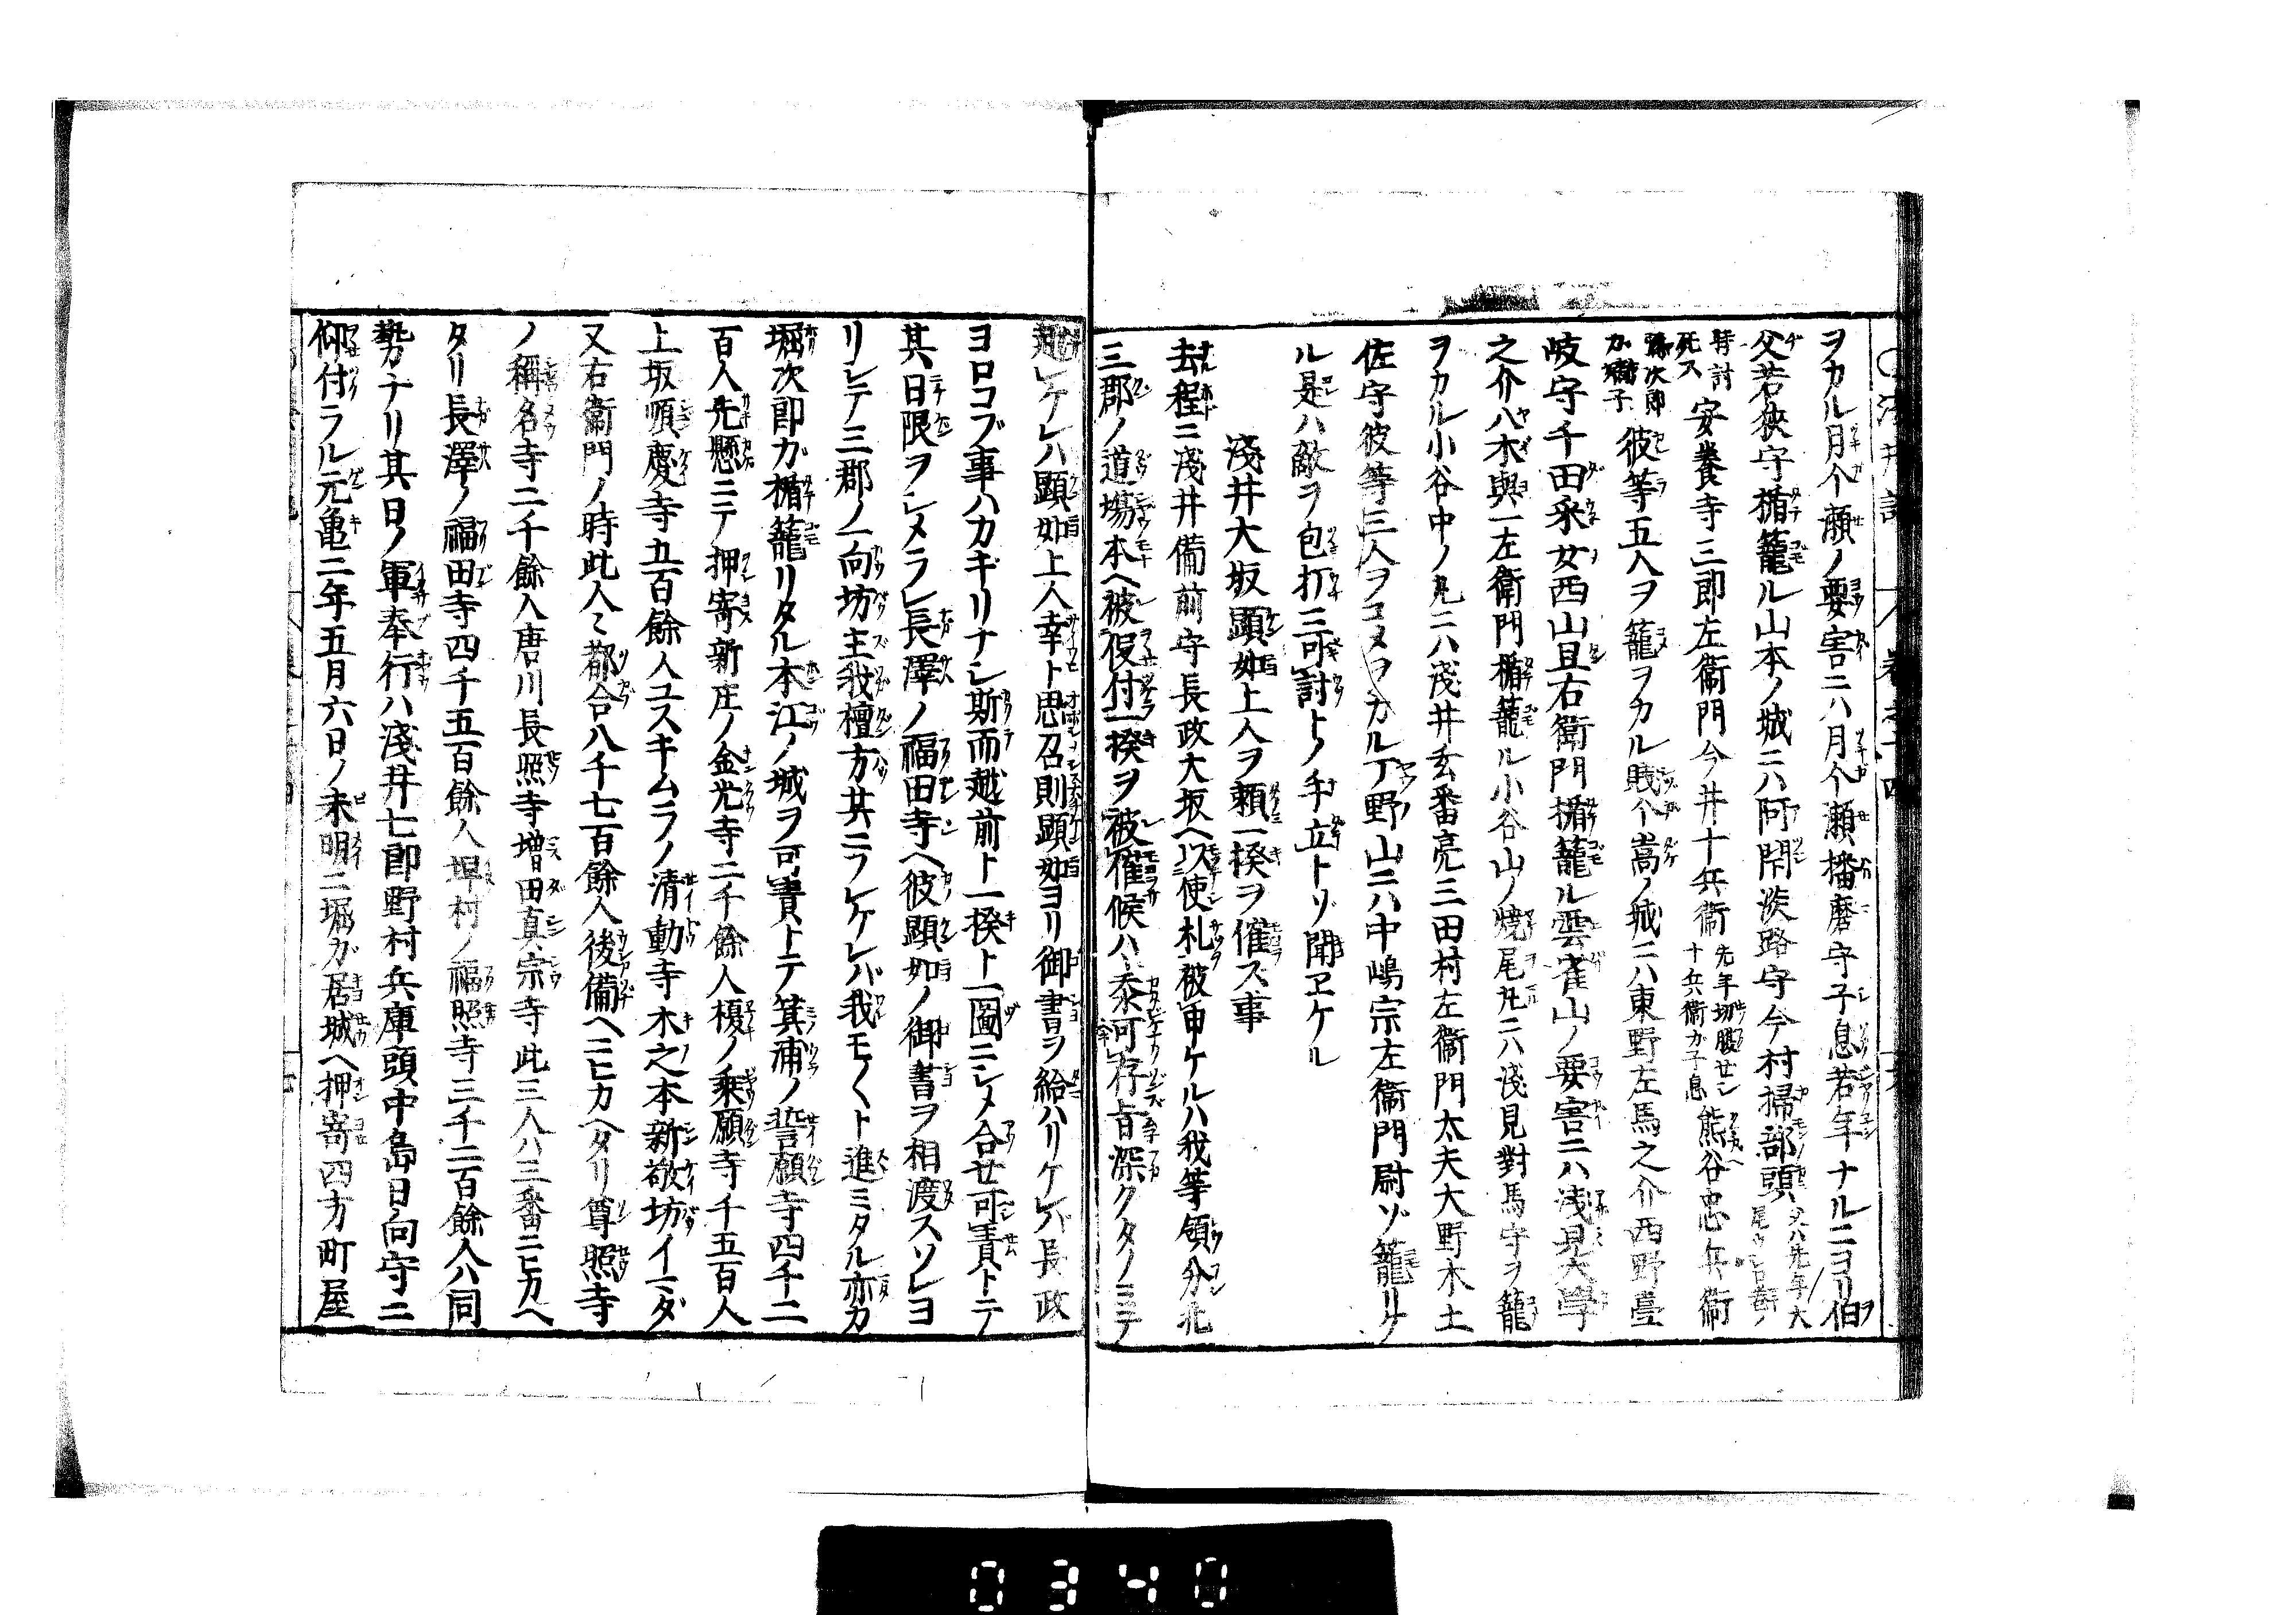 ヲカル月个瀬ノ要害ニハ月个瀬播磨守子息若年ナルニヨリ伯
父若狹守楯籠ル山本ノ城ニハ阿閉淡路守今村掃部頭父ハ先年大
尾ウシロ巻ノ
時討死ス安養寺三郎左衞門今井十兵衞先年切腹セシ十兵衞カ子息熊谷忠兵衞
次郎カ嫡子彼等五人ヲ籠ヲカル賎个嵩ノ城ニハ東野左馬之介西野壹
岐守千田采女西山旦右衞門楯籠ル雲雀山ノ要害ニハ淺見大學
之介八木與一左衞門楯籠ル小谷山ノ燒尾丸ニハ淺見對馬守ヲ籠
ヲカル小谷中ノ丸ニハ淺井玄番亮三田村左衞門太夫大野木土
佐守彼等三人ヲコメヲカル丁野山ニハ中嶋宗左衞門尉ゾ籠リケ
ル是ハ敵ヲ包打ニ可討トノ手立トゾ聞ヱケル
淺井大坂顯如上人ヲ頼一揆ヲ催ス事
去程ニ淺井備前守長政大坂ヘ以使札被申ケルハ我等領分北
三郡ノ道塲本ヘ被仰付一揆ヲ被催候ハヽ忝可存旨深クタノミテ
越シケレハ顯如上人幸ト思召則顯如ヨリ御書ヲ給ハリケレバ長政
ヨロコブ事ハカギリナシ斯而越前ト一揆ト一圖ニシメ合せ可責トテ
其日限ヲシメラレ長澤ノ福田寺ヘ彼顯如ノ御書ヲ相渡スソレヨ
リシテ三郡ノ一向坊主我檀方其ニフレケレバ我モ〱ト進ミタル亦カ
堀次郎カ楯籠リタル本江ノ城ヲ可責トテ箕浦ノ誓願寺四千二
百人先懸ニテ押寄新庄ノ金光寺二千餘人榎ノ乗願寺千五百人
上坂順慶寺五百餘人ユスキムラノ清動寺木之本新敬坊イマダ
又右衞門ノ時此人〻都合八千七百餘人後備ヘニヒカヘタリ尊照寺
ノ稱名寺二千餘人唐川長照寺増田真宗寺此三人ハ三番ニヒカヘ
タリ長澤ノ福田寺四千五百餘人榑村ノ福照寺三千二百餘人ハ同
勢ナリ其日ノ軍奉行ハ淺井七郎野村兵庫頭中島日向守ニ
仰付ラル元亀二年五月六日ノ未明ニ堀ガ居城ヘ押寄四方町屋
0340